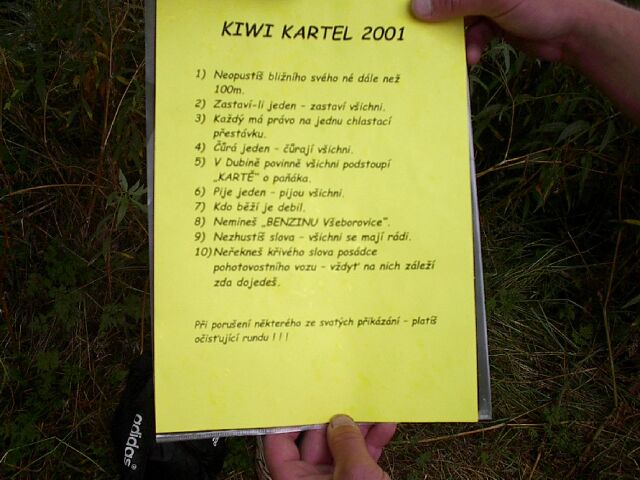 KIWI KARTEL 2001
1) Neopustíš bližního svého né dále než
100m.
2) Zastaví-li jeden - zastaví všichni.
3) Každý má právo na jednu chlastací
přestávku.
4) Čůrá jeden - čůrají všichni.
5) V Dubině povinně všichni podstoupí
„KARTĚ" o paňáka.
6) Pije jeden - pijou všichni.
7) Kdo běží je debil.
8) Nemineš „BENZINU Všeborovice".
9) Nezhustíš slova - všichni se mají rádi.
10) Neřekneš křivého slova posádce
pohotovostního vozu - vždyť na nich záleží
zda dojedeš.
Při porušení některého ze svatých přikázání - platíš
očisťující rundu ! ! !
adidas